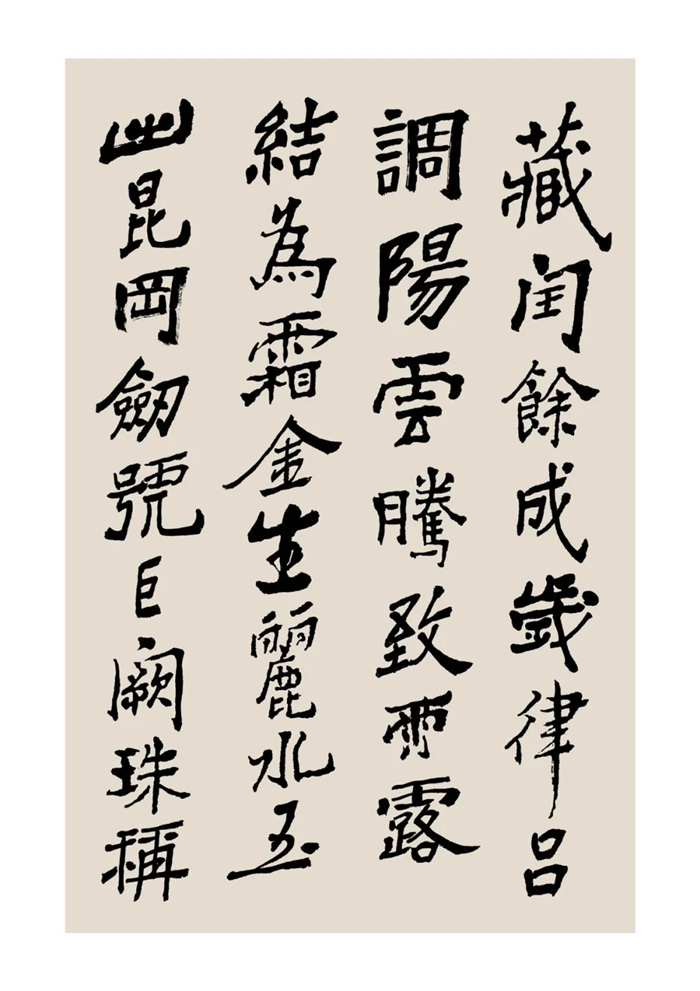 藏閏餘成歲律呂
調陽雲騰致雨露
結為霜金生麗水玉
出昆岡劒號巨闕珠稱